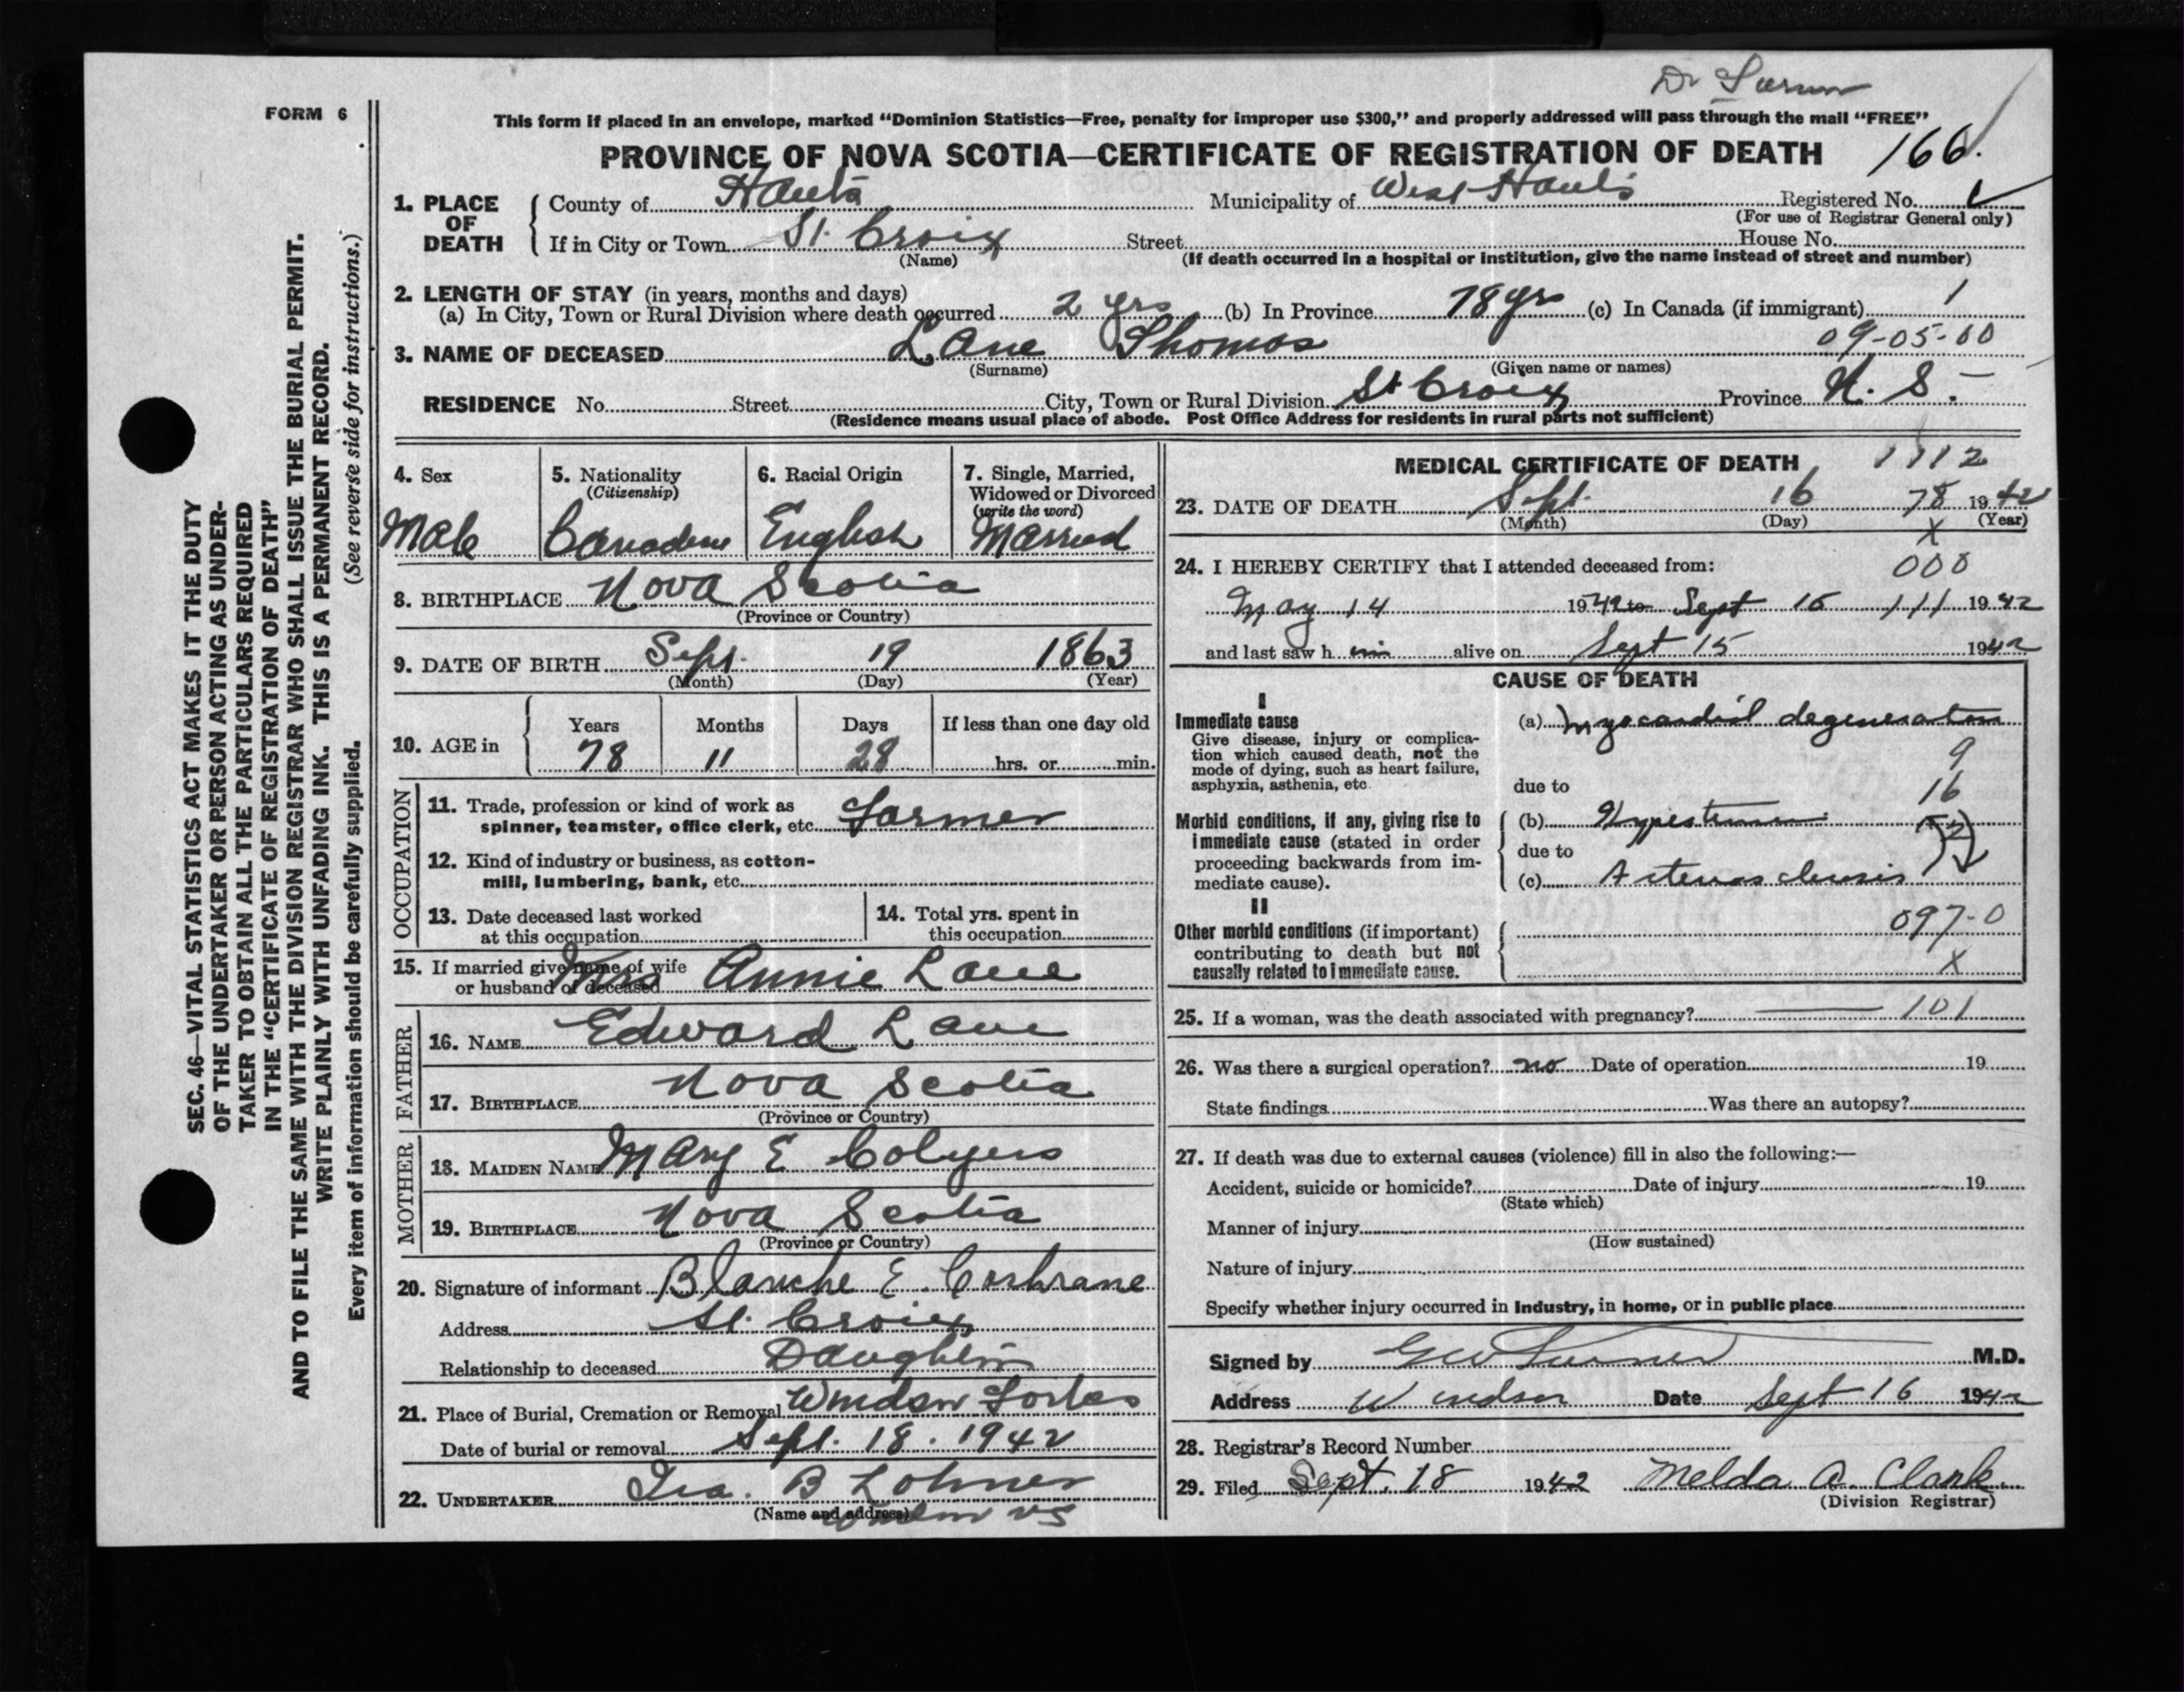 Dr Turner
FORM 6
This form if placed in an envelope, marked "Dominion Statistics—Free, penalty for improper use $300," and properly addressed will pass through the mail "FREE"
PROVINCE OF NOVA SCOTIA—CERTIFICATE OF REGISTRATION OF DEATH 166.
1. PLACE OF DEATH
County of Hants Municipality of West Hants Registered No.
(For use of Registrar General only)
If in City or Town St. Croix Street House No.
(Name) (If death occurred in a hospital or institution, give the name instead of street and number)
2. LENGTH OF STAY (in years, months and days)
(a) In City, Town or Rural Division where death occurred 2 yrs (b) In Province 78 yrs (c) In Canada (if immigrant) 1
09-05-00
3. NAME OF DECEASED Lane Thomas
(Surname) (Given name or names)
RESIDENCE No. Street City, Town or Rural Division St Croix Province N. S.
(Residence means usual place of abode. Post Office Address for residents in rural parts not sufficient)
4. Sex
Male
5. Nationality
(Citizenship)
Canadian
6. Racial Origin
English
7. Single, Married,
Widowed or Divorced
(write the word)
Married
8. BIRTHPLACE Nova Scotia
(Province or Country)
9. DATE OF BIRTH Sept. 19 1863
(Month) (Day) (Year)
10. AGE in
Years Months Days If less than one day old
78 11 28 hrs. or min.
OCCUPATION
11. Trade, profession or kind of work as
spinner, teamster, office clerk, etc. Farmer
12. Kind of industry or business, as cotton-
mill, lumbering, bank, etc.
13. Date deceased last worked
at this occupation
14. Total yrs. spent in
this occupation
15. If married give name of wife
or husband of deceased Mrs Annie Lane
FATHER
16. NAME Edward Lane
17. BIRTHPLACE Nova Scotia
(Province or Country)
MOTHER
18. MAIDEN NAME Mary E Colyers
19. BIRTHPLACE Nova Scotia
(Province or Country)
20. Signature of informant Blanche E. Cochrane
Address St. Croix
Relationship to deceased Daughter
21. Place of Burial, Cremation or Removal Windsor Forks
Date of burial or removal Sept. 18. 1942
22. UNDERTAKER Ira. B Lohnes
(Name and address) Windsor NS
MEDICAL CERTIFICATE OF DEATH 1112
23. DATE OF DEATH Sept. 16 78 1942
(Month) (Day) (Year)
X
24. I HEREBY CERTIFY that I attended deceased from: 000
May 14 1942 to Sept 15 111 1942
and last saw him alive on Sept 15 1942
CAUSE OF DEATH
I
Immediate cause
Give disease, injury or complica-
tion which caused death, not the
mode of dying, such as heart failure,
asphyxia, asthenia, etc.
(a) Myocardial degeneration
9
due to
16
Morbid conditions, if any, giving rise to
immediate cause (stated in order
proceeding backwards from im-
mediate cause).
(b) Hypertension
due to
(c) Arteriosclerosis
II
Other morbid conditions (if important)
contributing to death but not
causally related to immediate cause.
097-0
X
25. If a woman, was the death associated with pregnancy? 101
26. Was there a surgical operation? no Date of operation 19
State findings Was there an autopsy?
27. If death was due to external causes (violence) fill in also the following:—
Accident, suicide or homicide? Date of injury 19
(State which)
Manner of injury
(How sustained)
Nature of injury
Specify whether injury occurred in industry, in home, or in public place
Signed by GW Turner M.D.
Address Windsor Date Sept 16 1942
28. Registrar's Record Number
29. Filed Sept. 18 1942 Melda A. Clark.
(Division Registrar)
SEC. 46—VITAL STATISTICS ACT MAKES IT THE DUTY
OF THE UNDERTAKER OR PERSON ACTING AS UNDER-
TAKER TO OBTAIN ALL THE PARTICULARS REQUIRED
IN THE "CERTIFICATE OF REGISTRATION OF DEATH"
AND TO FILE THE SAME WITH THE DIVISION REGISTRAR WHO SHALL ISSUE THE BURIAL PERMIT.
WRITE PLAINLY WITH UNFADING INK. THIS IS A PERMANENT RECORD.
Every item of information should be carefully supplied. (See reverse side for instructions.)